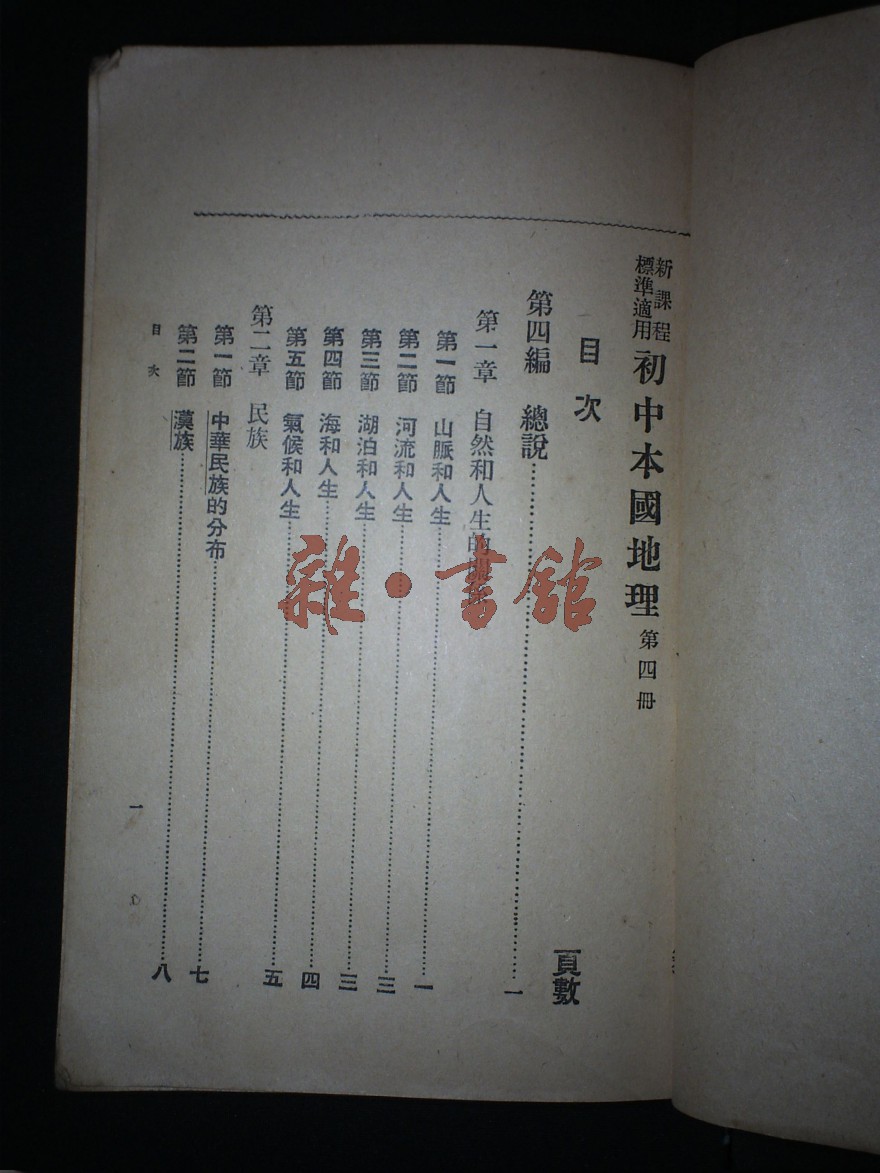 新課程標準適用 初中本國地理 第四冊
目次
頁數
第四編 總說 一
第一章 自然和人生的關係
第一節 山脈和人生 一
第二節 河流和人生 三
第三節 湖泊和人生 三
第四節 海和人生 四
第五節 氣候和人生 五
第二章 民族
第一節 中華民族的分布 七
第二節 漢族 八
目次
一
雜·書館